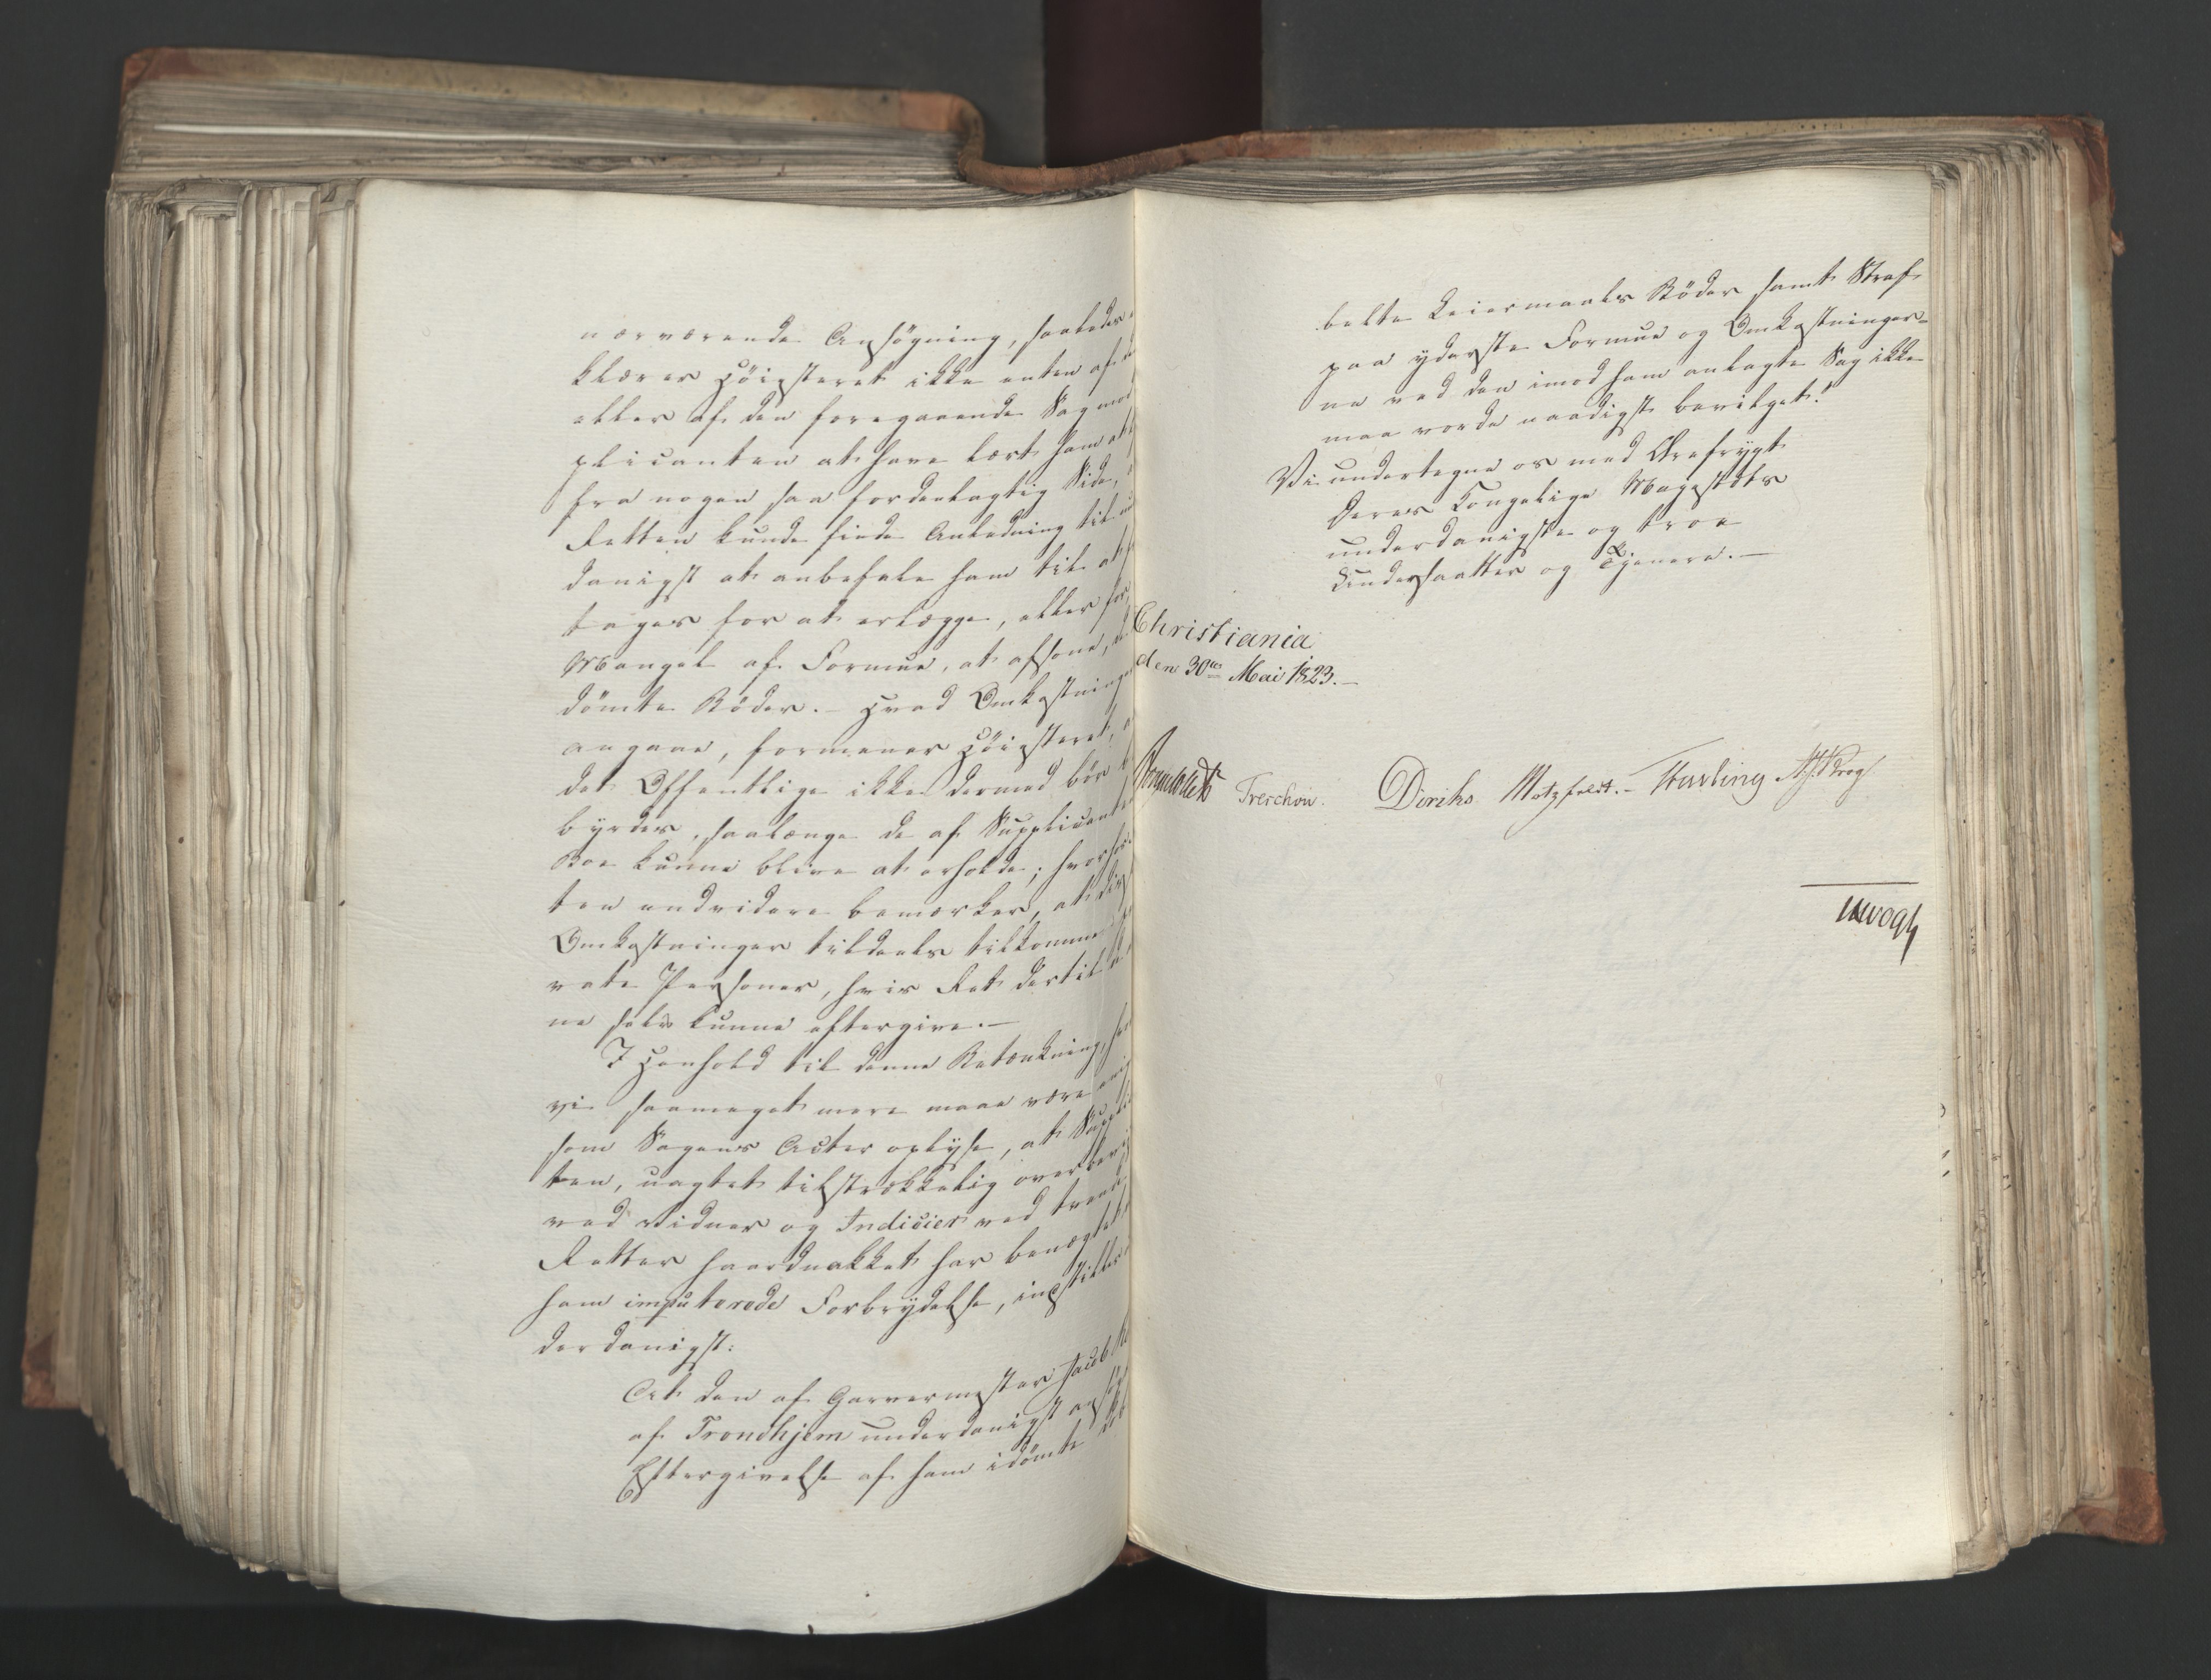 nærværende Ansøgning, saaledes
klærer Høiesteret ikke enten af de
eller af den foregaaende Sag mod
plicanten at have lært ham at
fra nogen saa fordeelagtig Side,
Retten kunde finde Anledning til
danigst at anbefale ham til at
tages for at erlægge, eller for
Mangel af Formue, at afsone,
dömte Böder. – Hvad Omkostninger
angaae, formener Høiesteret,
det Offentlige ikke dermed bör
byrdes, saalænge de af Supplicantens
Boe kunne blive at erholde; hvorhos
ten endvidere bemærker, at disse
Omkostninger tildeels tilkomme
vate Personer, hvis Ret dertil
ne selv kunne eftergive. –
I Henhold til denne Betænkning,
vi saameget mere maae være enige
som Sagens Acter oplyse, at Suppli
ten, uagtet tilstrækkelig overbeviist
ved Vidner og Indicier ved trende
Retter haardnakket har benægtet
ham imputerede Forbrydelse, indstilles
derdanigst:
At den af Garvermester Jacob
af Trondhjem underdanigst ansögte
Eftergivelse af ham idömte
belte Leiermaals Böder samt Straf
paa yderste Formue og Omkostninger-
ne ved den imod ham anlagte Sag ikke
maa vorde naadigst bevilget.
Vi undertegne os med Ærefrygt
Deres Kongelige Majestæts
underdanigste og troe
Undersaatter og Tjenere. –
Christiania
den 30te Mai 1823. –
Sommerhielm Treschow. Diriks Motzfeldt. – Fasting Krog
Vogt